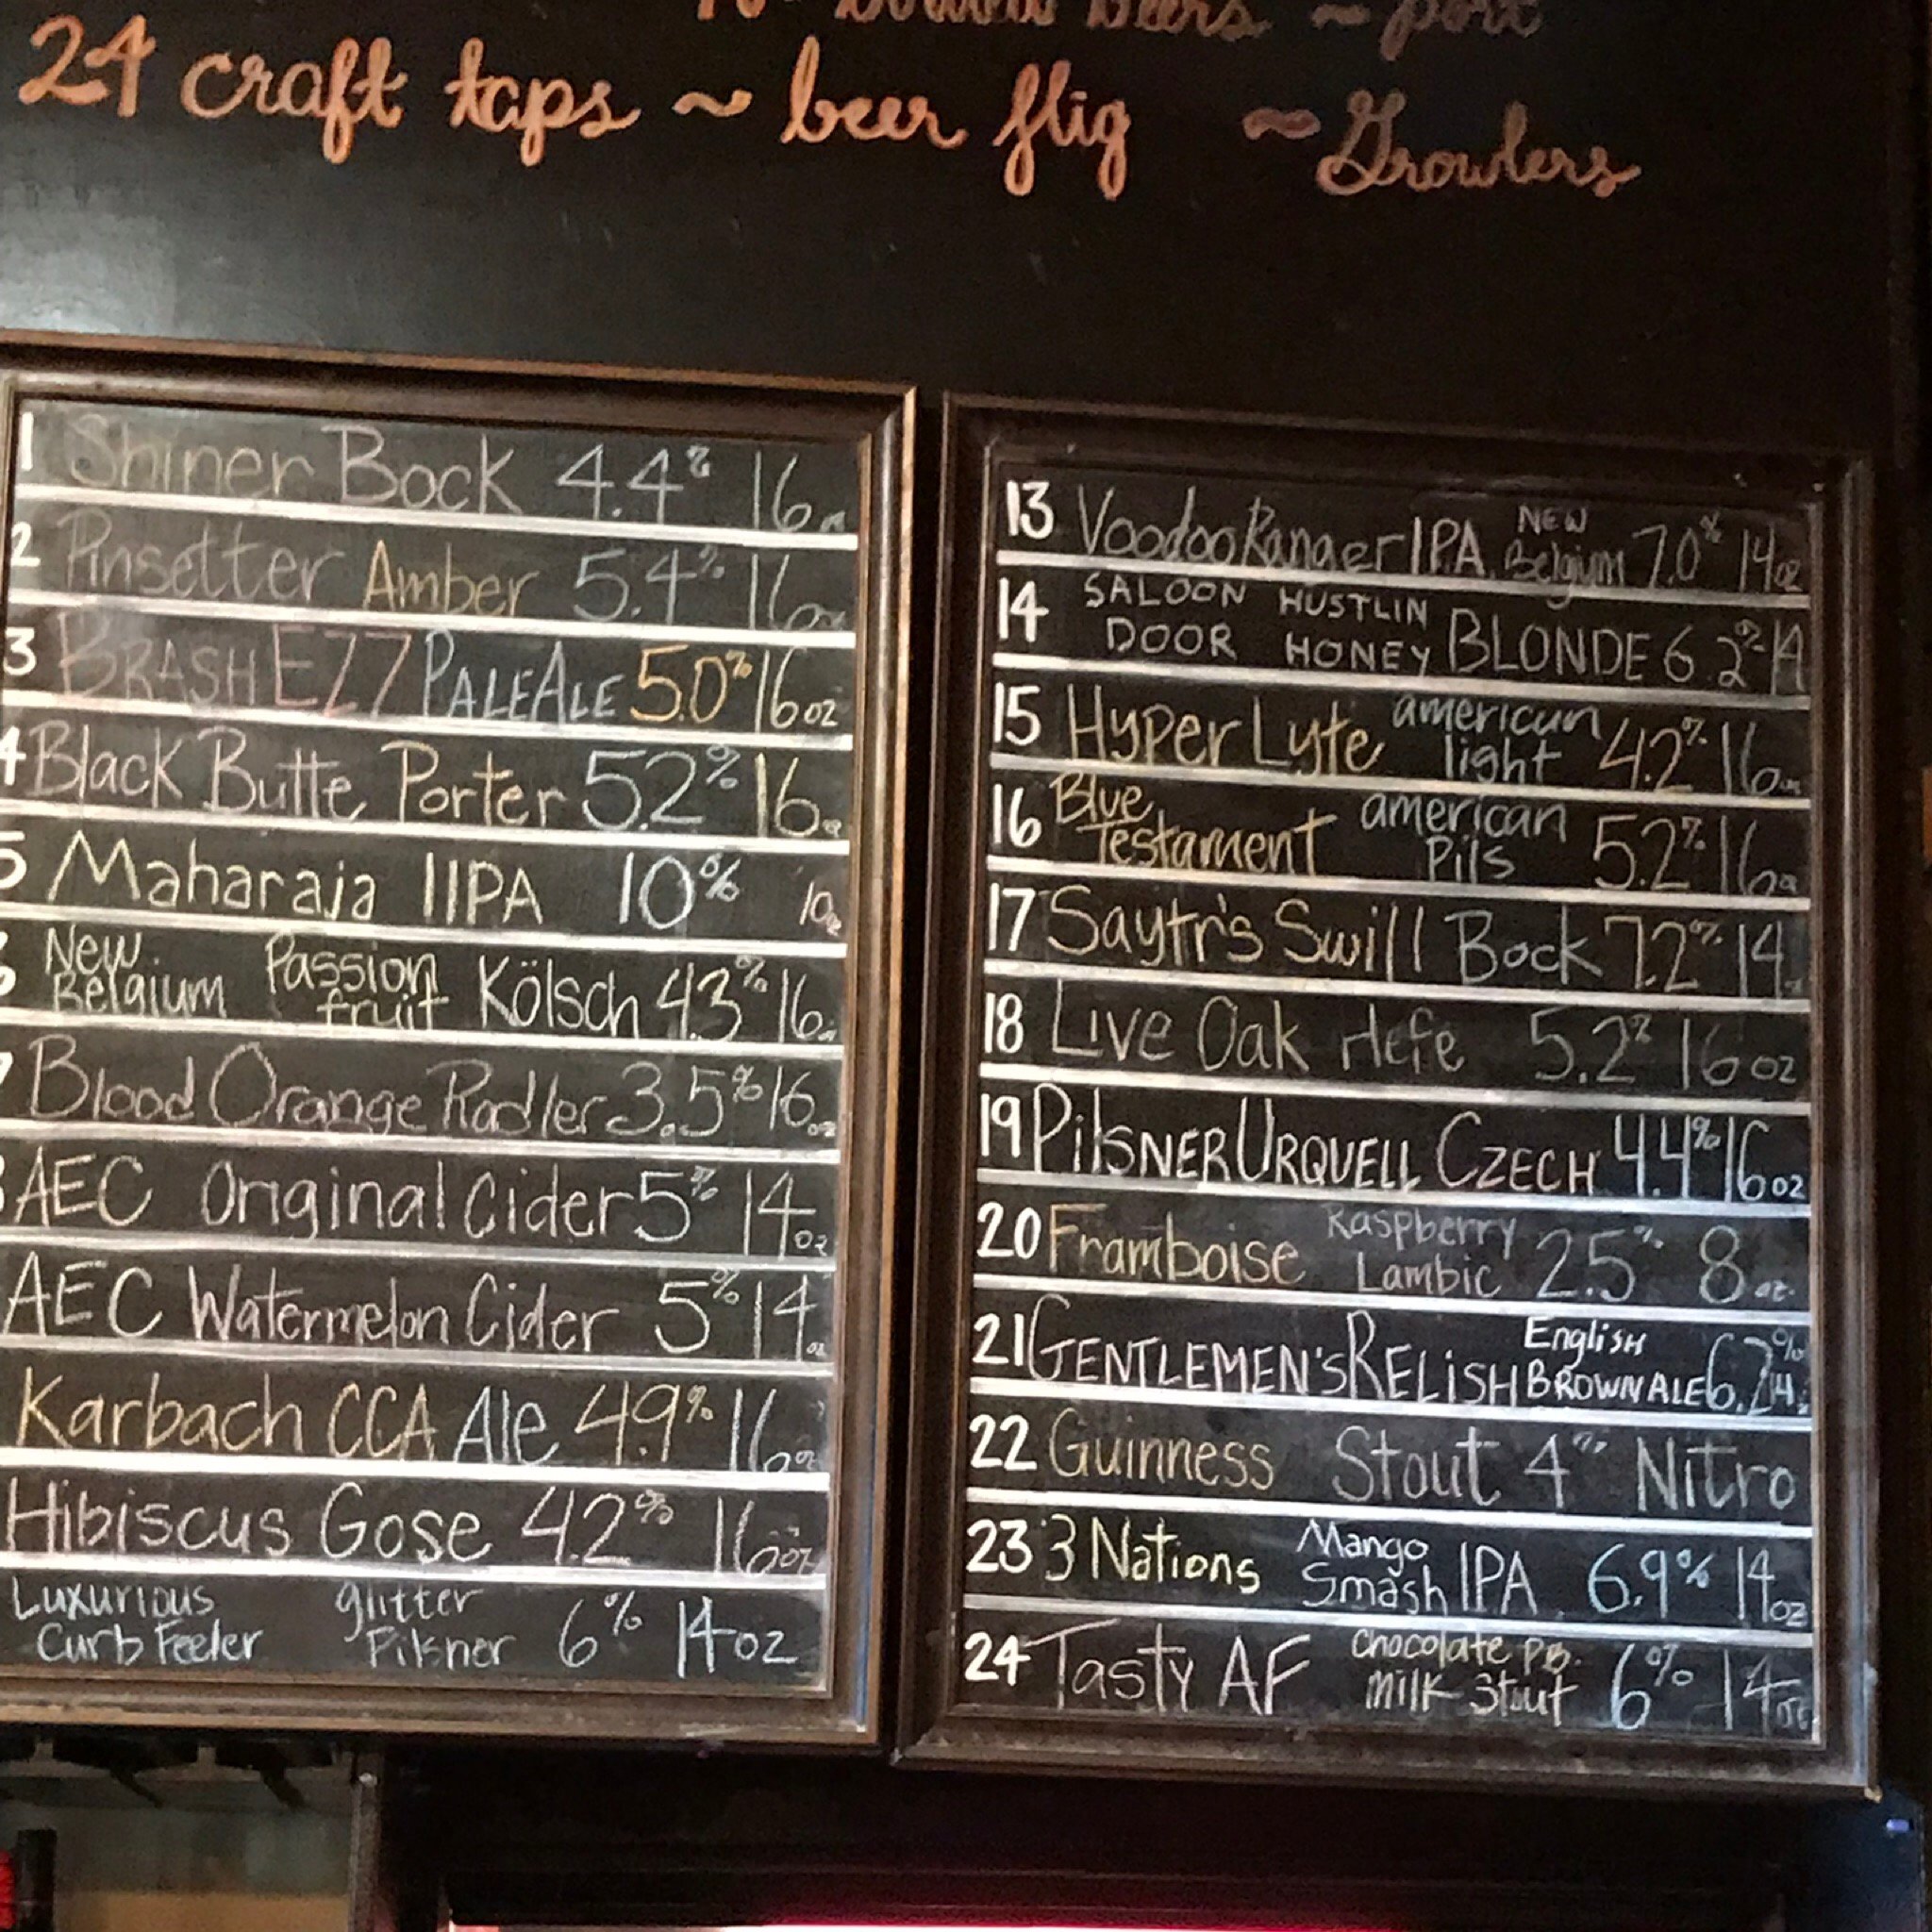 24 craft taps ~ beer flig ~ Growlers
1 Shiner Bock 4.4% 16oz
2 Pinsetter Amber 5.4% 16oz
3 BRASH EZ7 PALE ALE 5.0% 16oz
4 Black Butte Porter 5.2% 16oz
5 Maharaja IIPA 10% 10oz
6 New Belgium Passion fruit Kölsch 4.3% 16oz
7 Blood Orange Radler 3.5% 16oz
8 AEC Original Cider 5% 14oz
AEC Watermelon Cider 5% 14oz
Karbach CCA Ale 4.9% 16oz
Hibiscus Gose 4.2% 16oz
Luxurious Curb Feeler glitter Pilsner 6% 14oz
13 Voodoo Ranger IPA NEW Belgium 7.0% 14oz
14 SALOON DOOR HUSTLIN HONEY BLONDE 6.2% 14
15 Hyper Lyte american light 4.2% 16oz
16 Blue Testament american Pils 5.2% 16oz
17 Saytr's Swill Bock 7.2% 14oz
18 Live Oak Hefe 5.2% 16oz
19 PilSNER URQUELL CZECH 4.4% 16oz
20 Framboise Raspberry Lambic 2.5% 8oz.
21 GENTLEMEN'S RELiSH English BROWN ALE 14oz
22 Guinness Stout 4% Nitro
23 3 Nations Mango Smash IPA 6.9% 14oz
24 Tasty AF chocolate PB. Milk Stout 6% 14oz